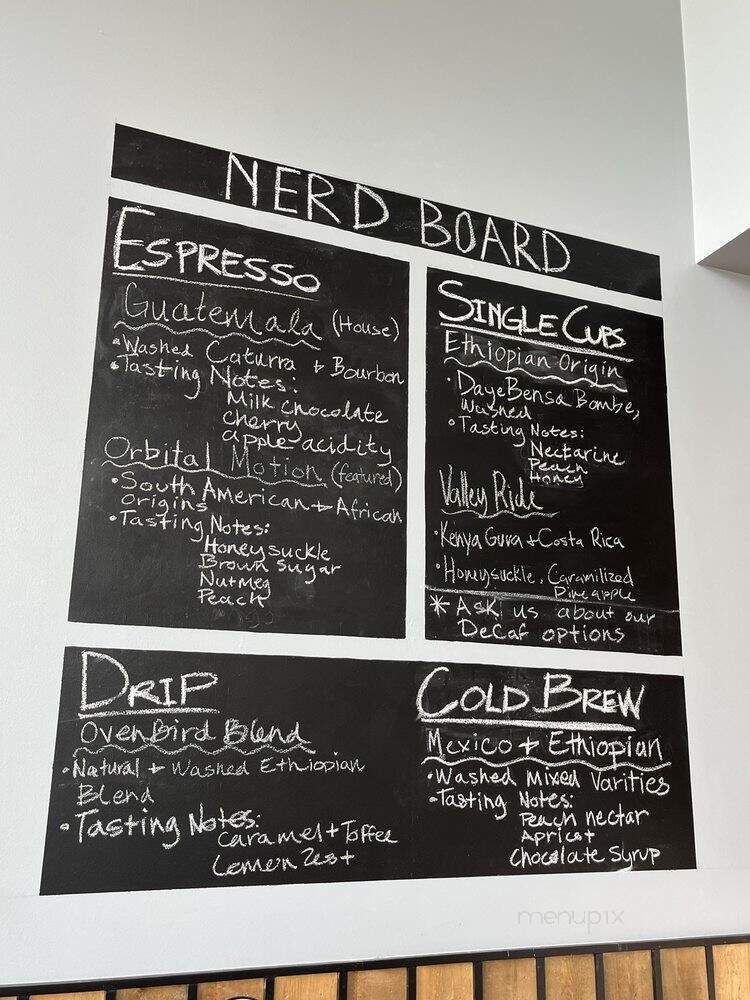 NERD BOARD
ESPRESSO
Guatemala (House)
•Washed Caturra + Bourbon
•Tasting Notes:
Milk chocolate
cherry
apple acidity
Orbital Motion (featured)
•South American + African
Origins
•Tasting Notes:
Honeysuckle
Brown Sugar
Nutmeg
Peach
SINGLE CUPS
Ethiopian Origin
•Daye Bensa Bombe,
Washed
•Tasting Notes:
Nectarine
Peach
Honey
Valley Ride
•Kenya + Costa Rica
•Honeysuckle, Caramilized
Pineapple
* Ask us about our
Decaf options
DRIP
OvenBird Blend
•Natural + Washed Ethiopian
Blend
•Tasting Notes:
Caramel + Toffee
Lemon Zest
COLD BREW
Mexico + Ethiopian
•Washed Mixed Varities
•Tasting Notes:
Peach nectar
Apricot
Chocolate Syrup
menupix